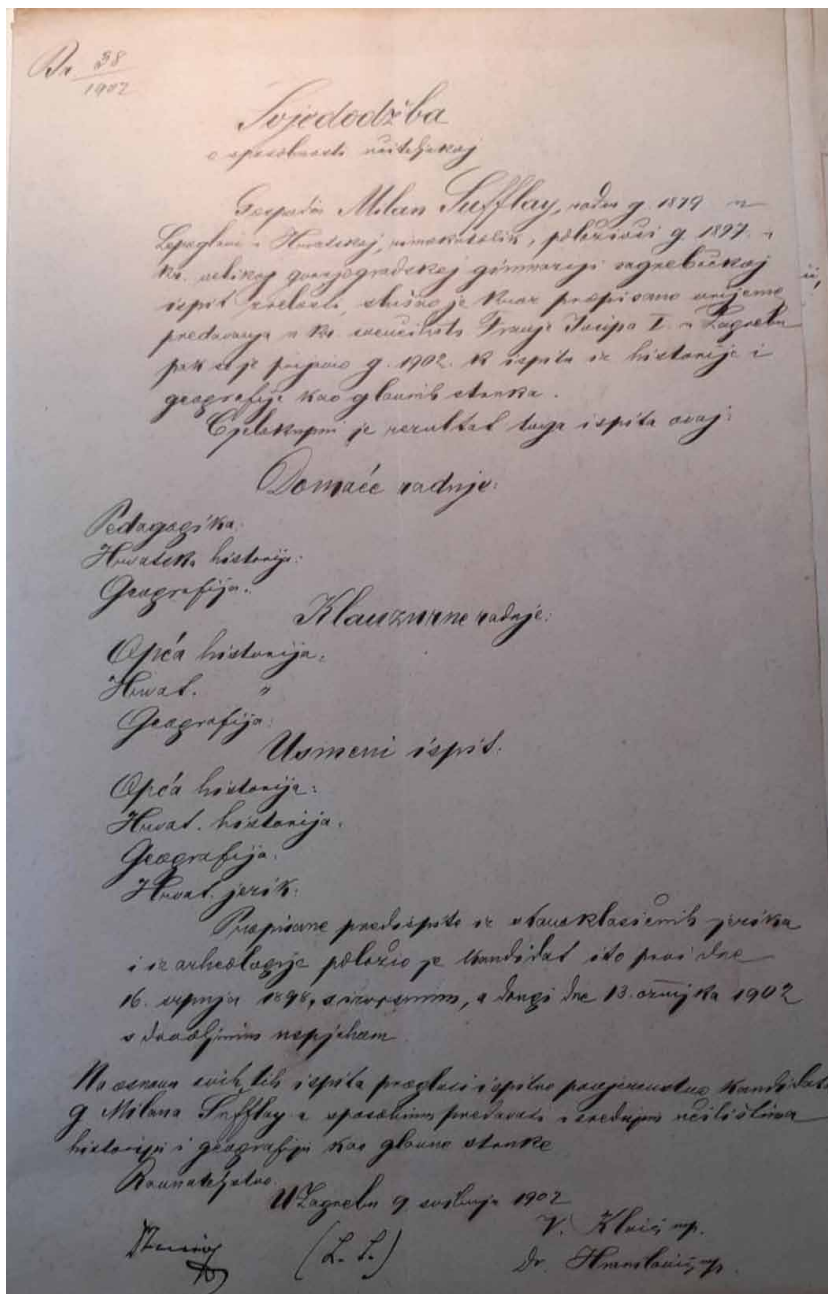 Br 38
1902
Svjedodžba
o sposobnosti učiteljskoj
Gospodin Milan Šufflay, rođen g. 1879 u
Lepoglavi u Hrvatskoj, rimokatolik, položivši g. 1897. u
kr. velikoj gornjogradskoj gimnaziji zagrebačkoj
ispit zrelosti, slušao je kroz propisano vrijeme
predavanja u kr. sveučilištu Franje Josipa I. u Zagrebu
pak se je prijavio g. 1902. k ispitu iz historije i
geografije kao glavnih struka.
Cjelokupni je rezultat toga ispita ovaj:
Domaće radnje:
Pedagogijka:
Hrvatska historija:
Geografija:
Klauzurne radnje:
Opća historija:
Hrvat. "
Geografija:
Usmeni ispit:
Opća historija:
Hrvat. historija:
Geografija:
Hrvat. jezik:
Propisane predispite iz staroklasičnih jezika
i iz arheologije položio je kandidat i to prvi dne
16. srpnja 1898, s izvrsnim, a drugi dne 13. ožujka 1902
s dovoljnim uspjehom.
Na osnovu svih tih ispita proglasi ispitno povjerenstvo kandidata
g Milana Šufflay a sposobnim predavati u srednjim učilištima
historiju i geografiju kao glavne struke
Ravnateljstvo.
U Zagrebu 9 svibnja 1902
V. Klaić mp.
(L. S.)
Dr. Hranilović mp.